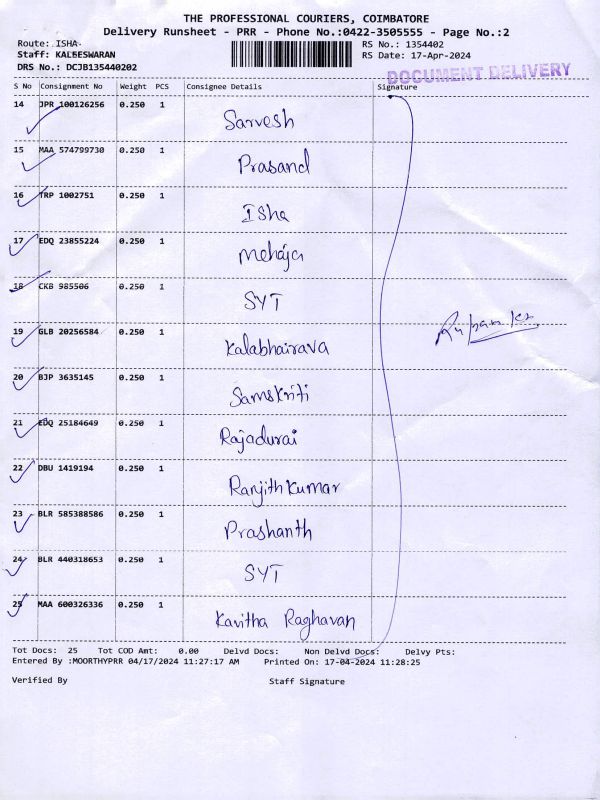 THE PROFESSIONAL COURIERS, COIMBATORE
Delivery Runsheet - PRR - Phone No.:0422-3505555 - Page No.:2
Route: ISHA RS No.: 1354402
Staff: KALEESWARAN RS Date: 17-Apr-2024
DRS No.: DCJB135440202
DOCUMENT DELIVERY
S No Consignment No Weight PCS Consignee Details Signature
14 JPR 100126256 0.250 1 Sarvesh
15 MAA 574799730 0.250 1 Prasand
16 TRP 1002751 0.250 1 Isha
17 EDQ 23855224 0.250 1 Mehaja
18 CKB 985506 0.250 1 SYT
19 GLB 20256584 0.250 1 Kalabhairava
20 BJP 3635145 0.250 1 Samskriti
21 EDQ 25184649 0.250 1 Rajadurai
22 DBU 1419194 0.250 1 Ranjith Kumar
23 BLR 585388586 0.250 1 Prashanth
24 BLR 440318653 0.250 1 SYT
25 MAA 600326336 0.250 1 Kavitha Raghavan
Tot Docs: 25 Tot COD Amt: 0.00 Delvd Docs: Non Delvd Docs: Delvy Pts:
Entered By :MOORTHYPRR 04/17/2024 11:27:17 AM Printed On: 17-04-2024 11:28:25
Verified By Staff Signature